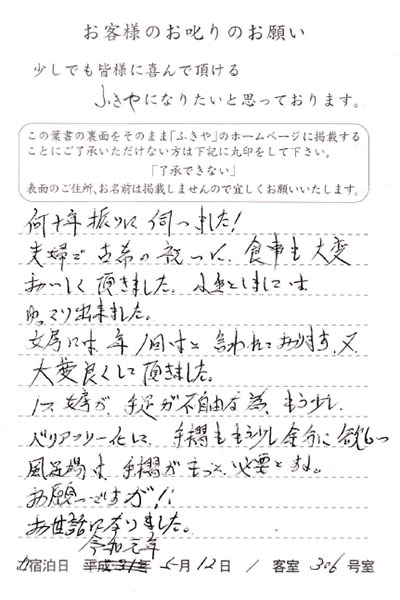 お客様のお叱りのお願い
少しでも皆様に喜んで頂ける
ふきやになりたいと思っております。
この葉書の裏面をそのまま「ふきや」のホームページに掲載する
ことにご了承いただけない方は下記に丸印をして下さい。
「了承できない」
表面のご住所、お名前は掲載しませんので宜しくお願いいたします。
何十年振りに伺いました!
夫婦で古希の祝いに、食事も大変
おいしく頂きました。 としましては
ゆっくり出来ました。
女房には年1回はと言われております。又
大変良くして頂きました。
1つ女房が、手足が不自由な為、もう少し
バリアフリー化して、手摺ももう少し余分に欲しい
風呂場は、手摺がもっと必要ですね。
お願いですが!!
お世話になりました。
令和元年
宿泊日 平成31年 5月12日 / 客室 306号室